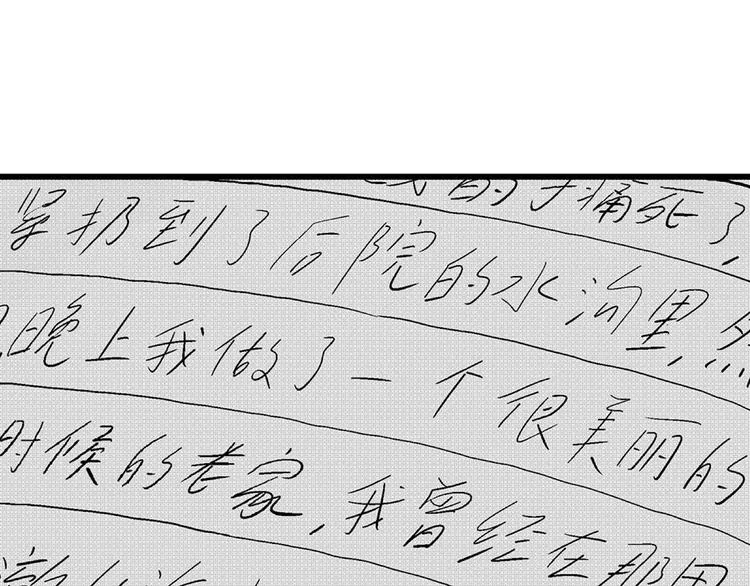 的手痛死了,
紧扔到了后院的水沟里,然
晚上我做了一个很美丽的
时候的老家,我曾经在那里